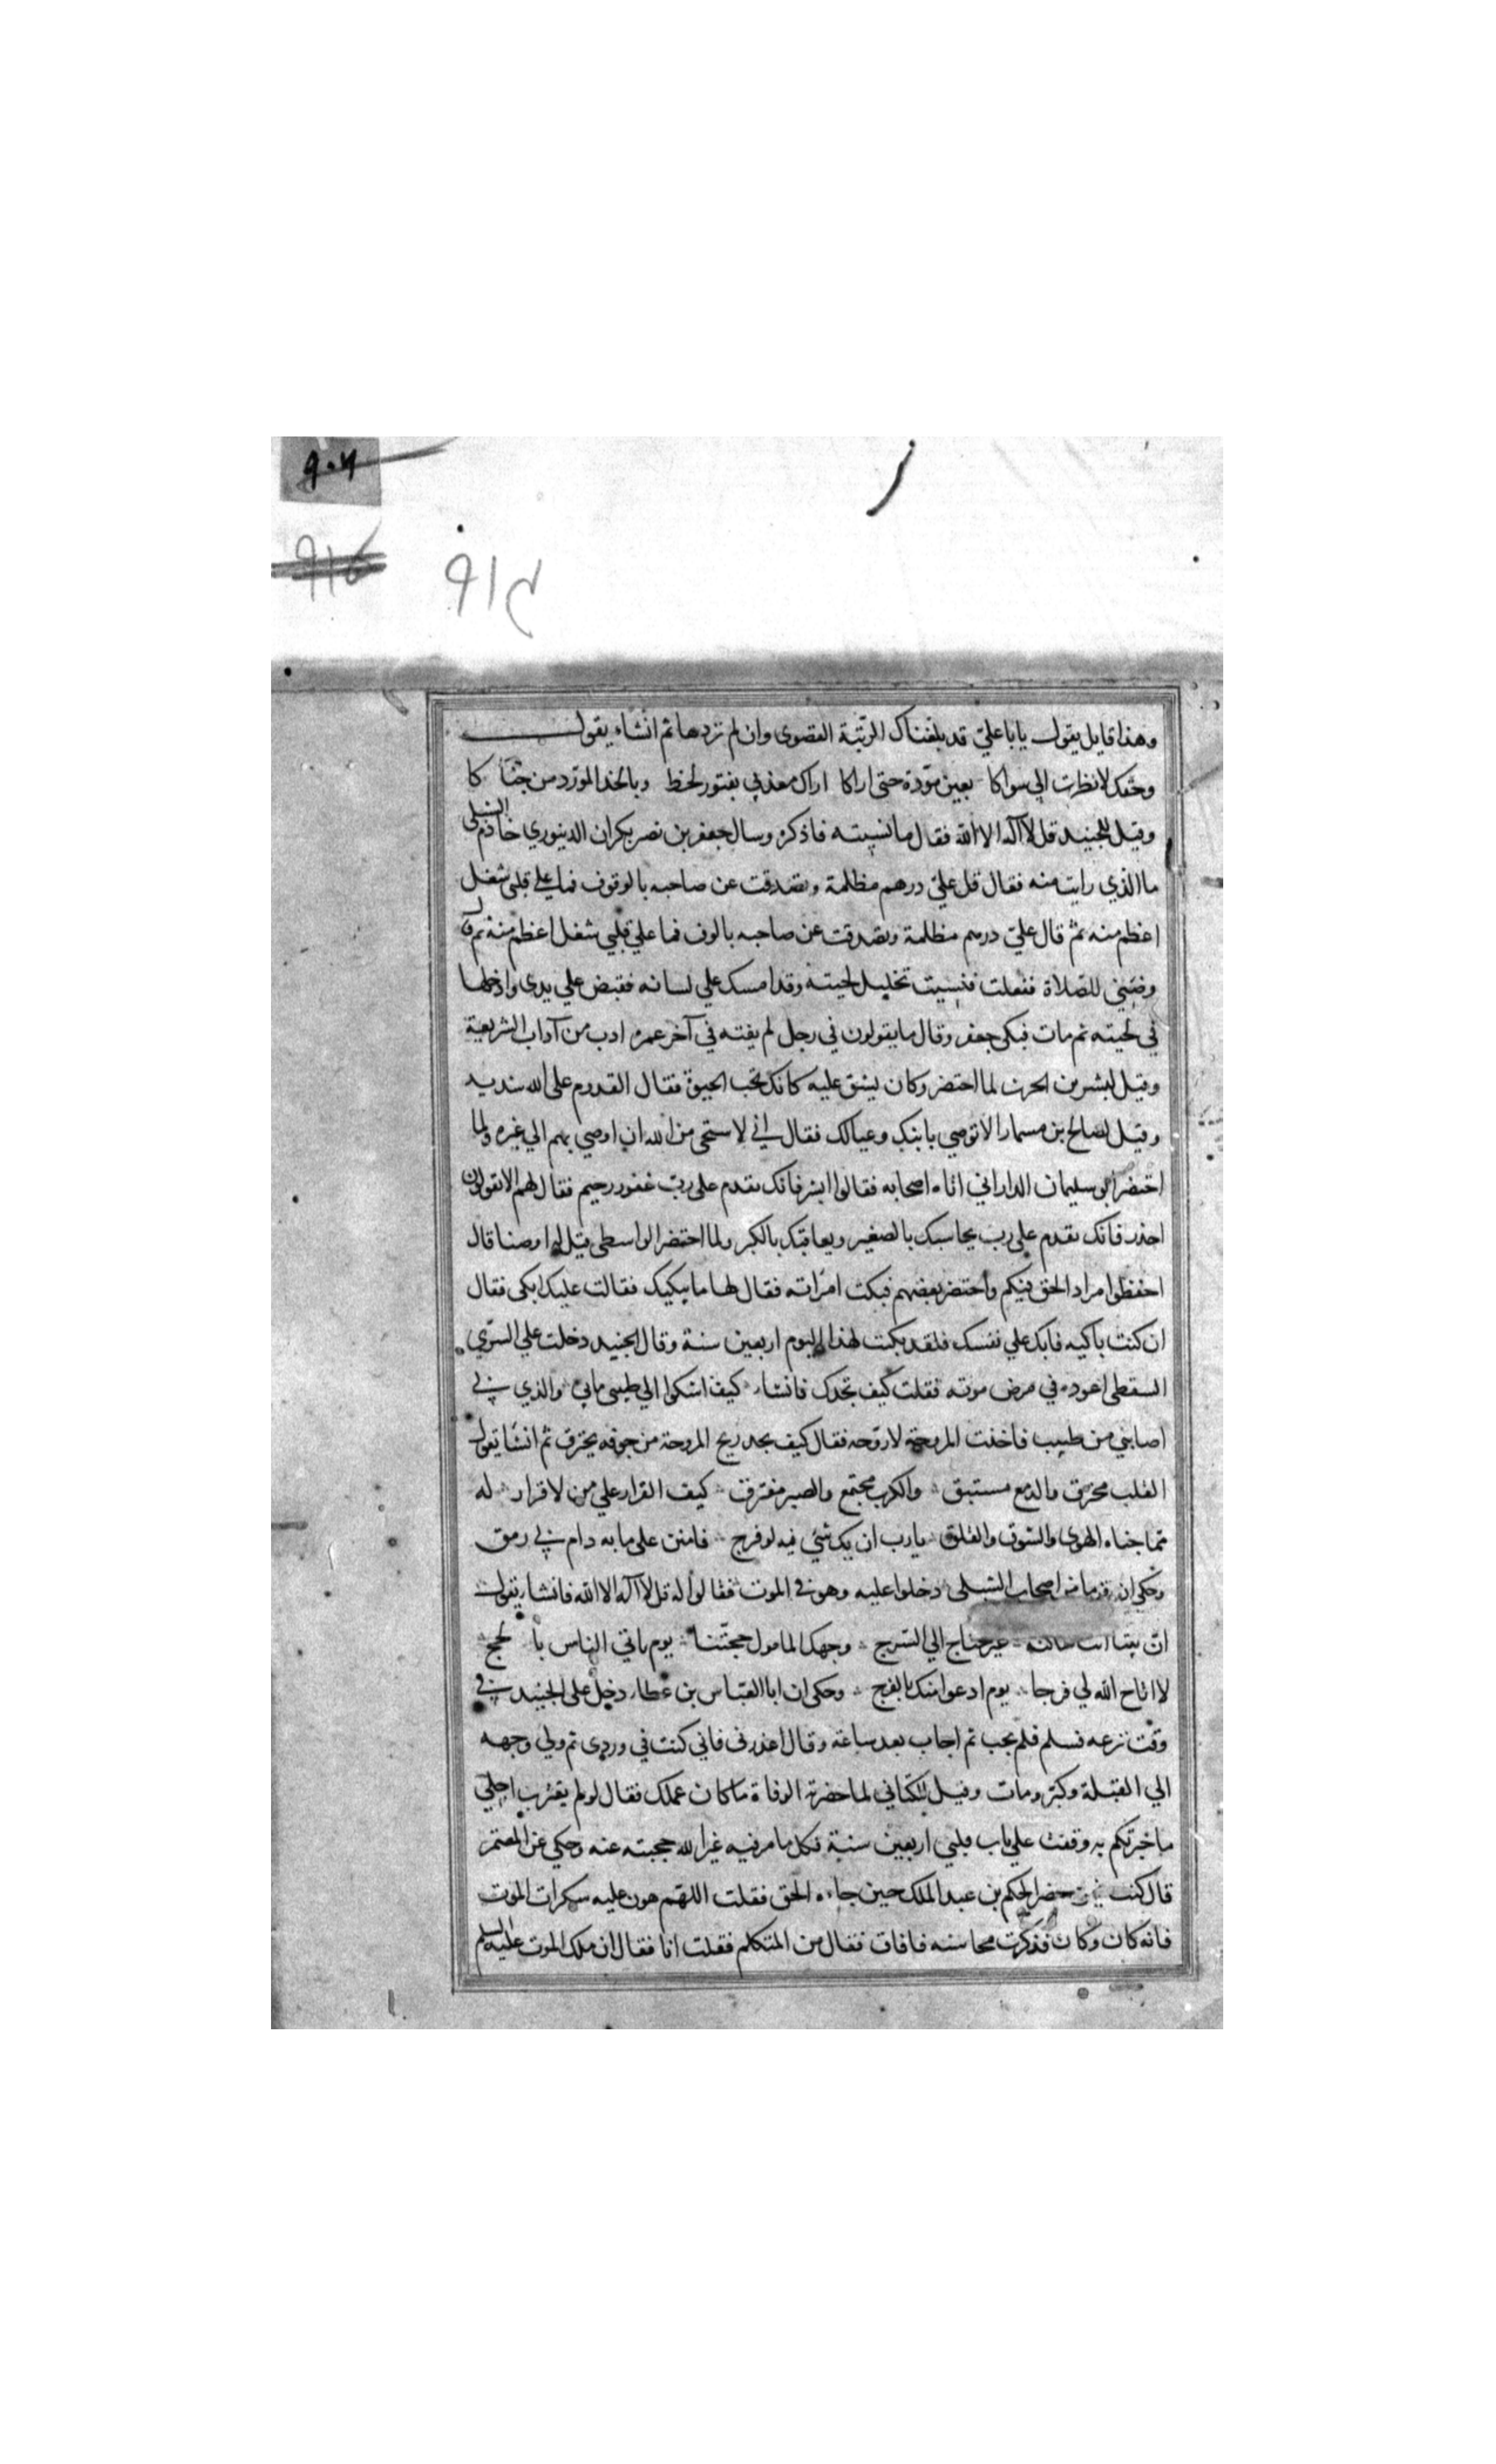 ٩٠٢
٩١٤
٩١٤
وهذا قايل يقول يابا علي قد بلغناك الرتبة القصوى وان لم تردها ثم انشاء يقول
وحقك لا نظرت الي سواكا بعين مودة حتى اراكا اراك معذبي بفتور لحظ وبالخد المورد من جنا كا
وقيل للجنيد قل لا اله الا الله فقال ما نسيته فاذكره وسال جعفر بن نصر بكران الدينوري خادم الشبلى
ما الذي رايت منه فقال قل علي درهم مظلمة وتصدقت عن صاحبه بالوقوف فما على قلبى شغل
اعظم منه ثم قال علي درهم مظلمة وتصدقت عن صاحبه بالوف فما علي قلبي شغل اعظم منه ثم قال
وضيني للصلاة ففعلت فنسيت تخليل لحيته وقد امسك علي لسانه فقبض علي يدى وادخلها
في لحيته ثم مات فبكى جعفر وقال ما يقولون في رجل لم يفته في آخر عمره ادب من آداب الشريعة
وقيل لبشر بن الحرث لما احتضر وكان يشق عليه كانك تحب الحيوة فقال القدوم على الله شديد
وقيل لصالح بن مسمار الا توصي بابنك وعيالك فقال اني لاستحى من الله ان اوصي بهم الي غيره ولما
احتضر ابو سليمان الداراني اتاه اصحابه فقالوا ابشر فانك تقدم على رب غفور رحيم فقال لهم الا تقولون
احذر فانك تقدم على رب يحاسبك بالصغير ويعاقبك بالكبر ولما احتضر الواسطى قيل له اوصنا قال
احفظوا مراد الحق فيكم واحتضر بعضهم فبكت امراته فقال لها ما يبكيك فقالت عليك ابكى فقال
ان كنت باكيه فابك علي نفسك فلقد بكت لهذا اليوم اربعين سنة وقال الجنيد دخلت علي السري
السقطى اعوده في مرض موته فقلت كيف تجدك فانشاء كيف اشكوا الي طبيبى مابي والذي بي
اصابني من طبيب فاخذت المروحة لاروحه فقال كيف يجد ريح المروحة من جوفه يحترق ثم انشا يقول
القلب محترق والدمع مستبق والكرب مجتمع والصبر مفترق كيف القرار علي من لا قرار له
مما جناه الهوى والشوق والقلق يا رب ان يك شئي فيه لو فرج فامنن على مابه دام بي رمق
وحكى ان قوما من اصحاب الشبلى دخلوا عليه وهو في الموت فقالوا له قل لا اله الا الله فانشا يقول
ان بيتا انت ساكنه غير محتاج الي السرج وجهك المامول حجتنا يوم ياتي الناس با لحجج
لا اتاح الله لي فرجا يوم ادعوا منك بالفرج وحكى ان ابا العباس بن عطاء دخل على الجنيد في
وقت نزعه فسلم فلم يجب ثم اجاب بعد ساعة وقال اعذرنى فاني كنت في وردى ثم ولي وجهه
الي القبلة وكبر ومات وقيل للكتاني لما حضرته الوفاة ما كان عملك فقال لو لم يقترب اجلي
ما خبرتكم به وقفت علي باب قلبي اربعين سنة فكل ما مر فيه غير الله حجبته عنه وحكي عن المعتمر
قال كنت حضر الحكم بن عبد الملك حين جاءه الحق فقلت اللهم هون عليه سكرات الموت
فانه كان وكان فذكرت محاسنه فافاق فقال من المتكلم فقلت انا فقال ان ملك الموت عليه السلم